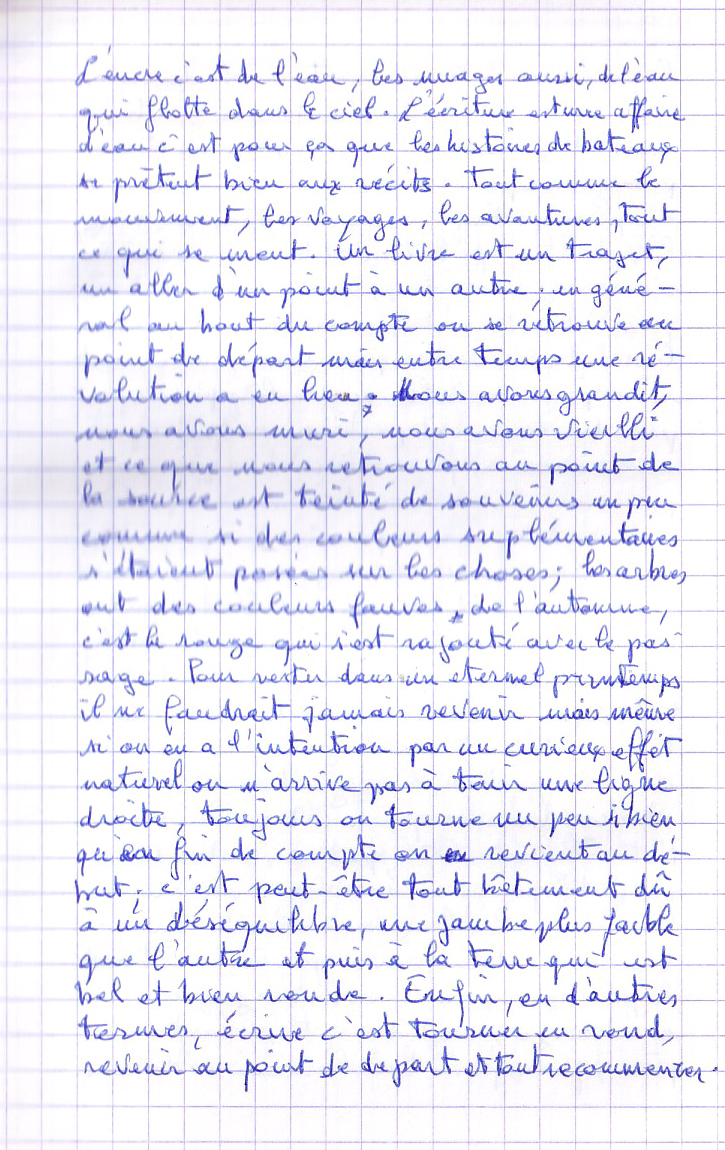 L'encre c'est de l'eau, les nuages aussi, de l'eau
qui flotte dans le ciel. L'écriture est une affaire
d'eau c'est pour ça que les histoires de bateaux
se prêtent bien aux récits. Tout comme le
mouvement, les voyages, les avantures, tout
ce qui se meut. Un livre est un trajet,
un aller d'un point à un autre ; en géné-
ral au bout du compte on se retrouve au
point de départ mais entre temps une ré-
volution a eu lieu. Nous avons grandit,
nous avons muri, nous avons vieilli
et ce que nous retrouvons au point de
la source est teinté de souvenirs un peu
comme si des couleurs suplémentaires
s'étaient posées sur les choses ; les arbres
ont des couleurs fauves, de l'automne,
c'est le rouge qui s'est rajouté avec le pas-
sage. Pour rester dans un eternel printemps
il ne faudrait jamais revenir mais même
si on en a l'intention par un curieux effet
naturel on n'arrive pas à tenir une ligne
droite, toujours on tourne un peu si bien
qu'en fin de compte on revient au dé-
but ; c'est peut-être tout bêtement dû
à un déséquilibre, une jambe plus faible
que l'autre et puis à la terre qui est
bel et bien ronde. Enfin, en d'autres
termes, écrire c'est tourner en rond,
revenir au point de depart et tout recommencer.